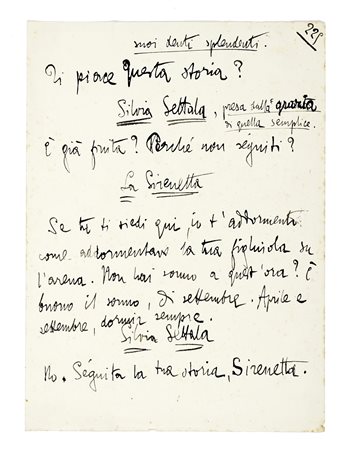 225
suoi denti splendenti.
Ti piace questa storia?
Silvia Settala, presa dalla grazia
di quella semplice.
È già finita? Perché non seguiti?
La Sirenetta
Se tu ti siedi qui, io t'addormento
come addormentavo la tua figliuola su
l'arena. Non hai sonno a quest'ora? È
buono il sonno, di settembre. Aprile e
settembre, dormir sempre.
Silvia Settala
No. Séguita la tua storia, Sirenetta.